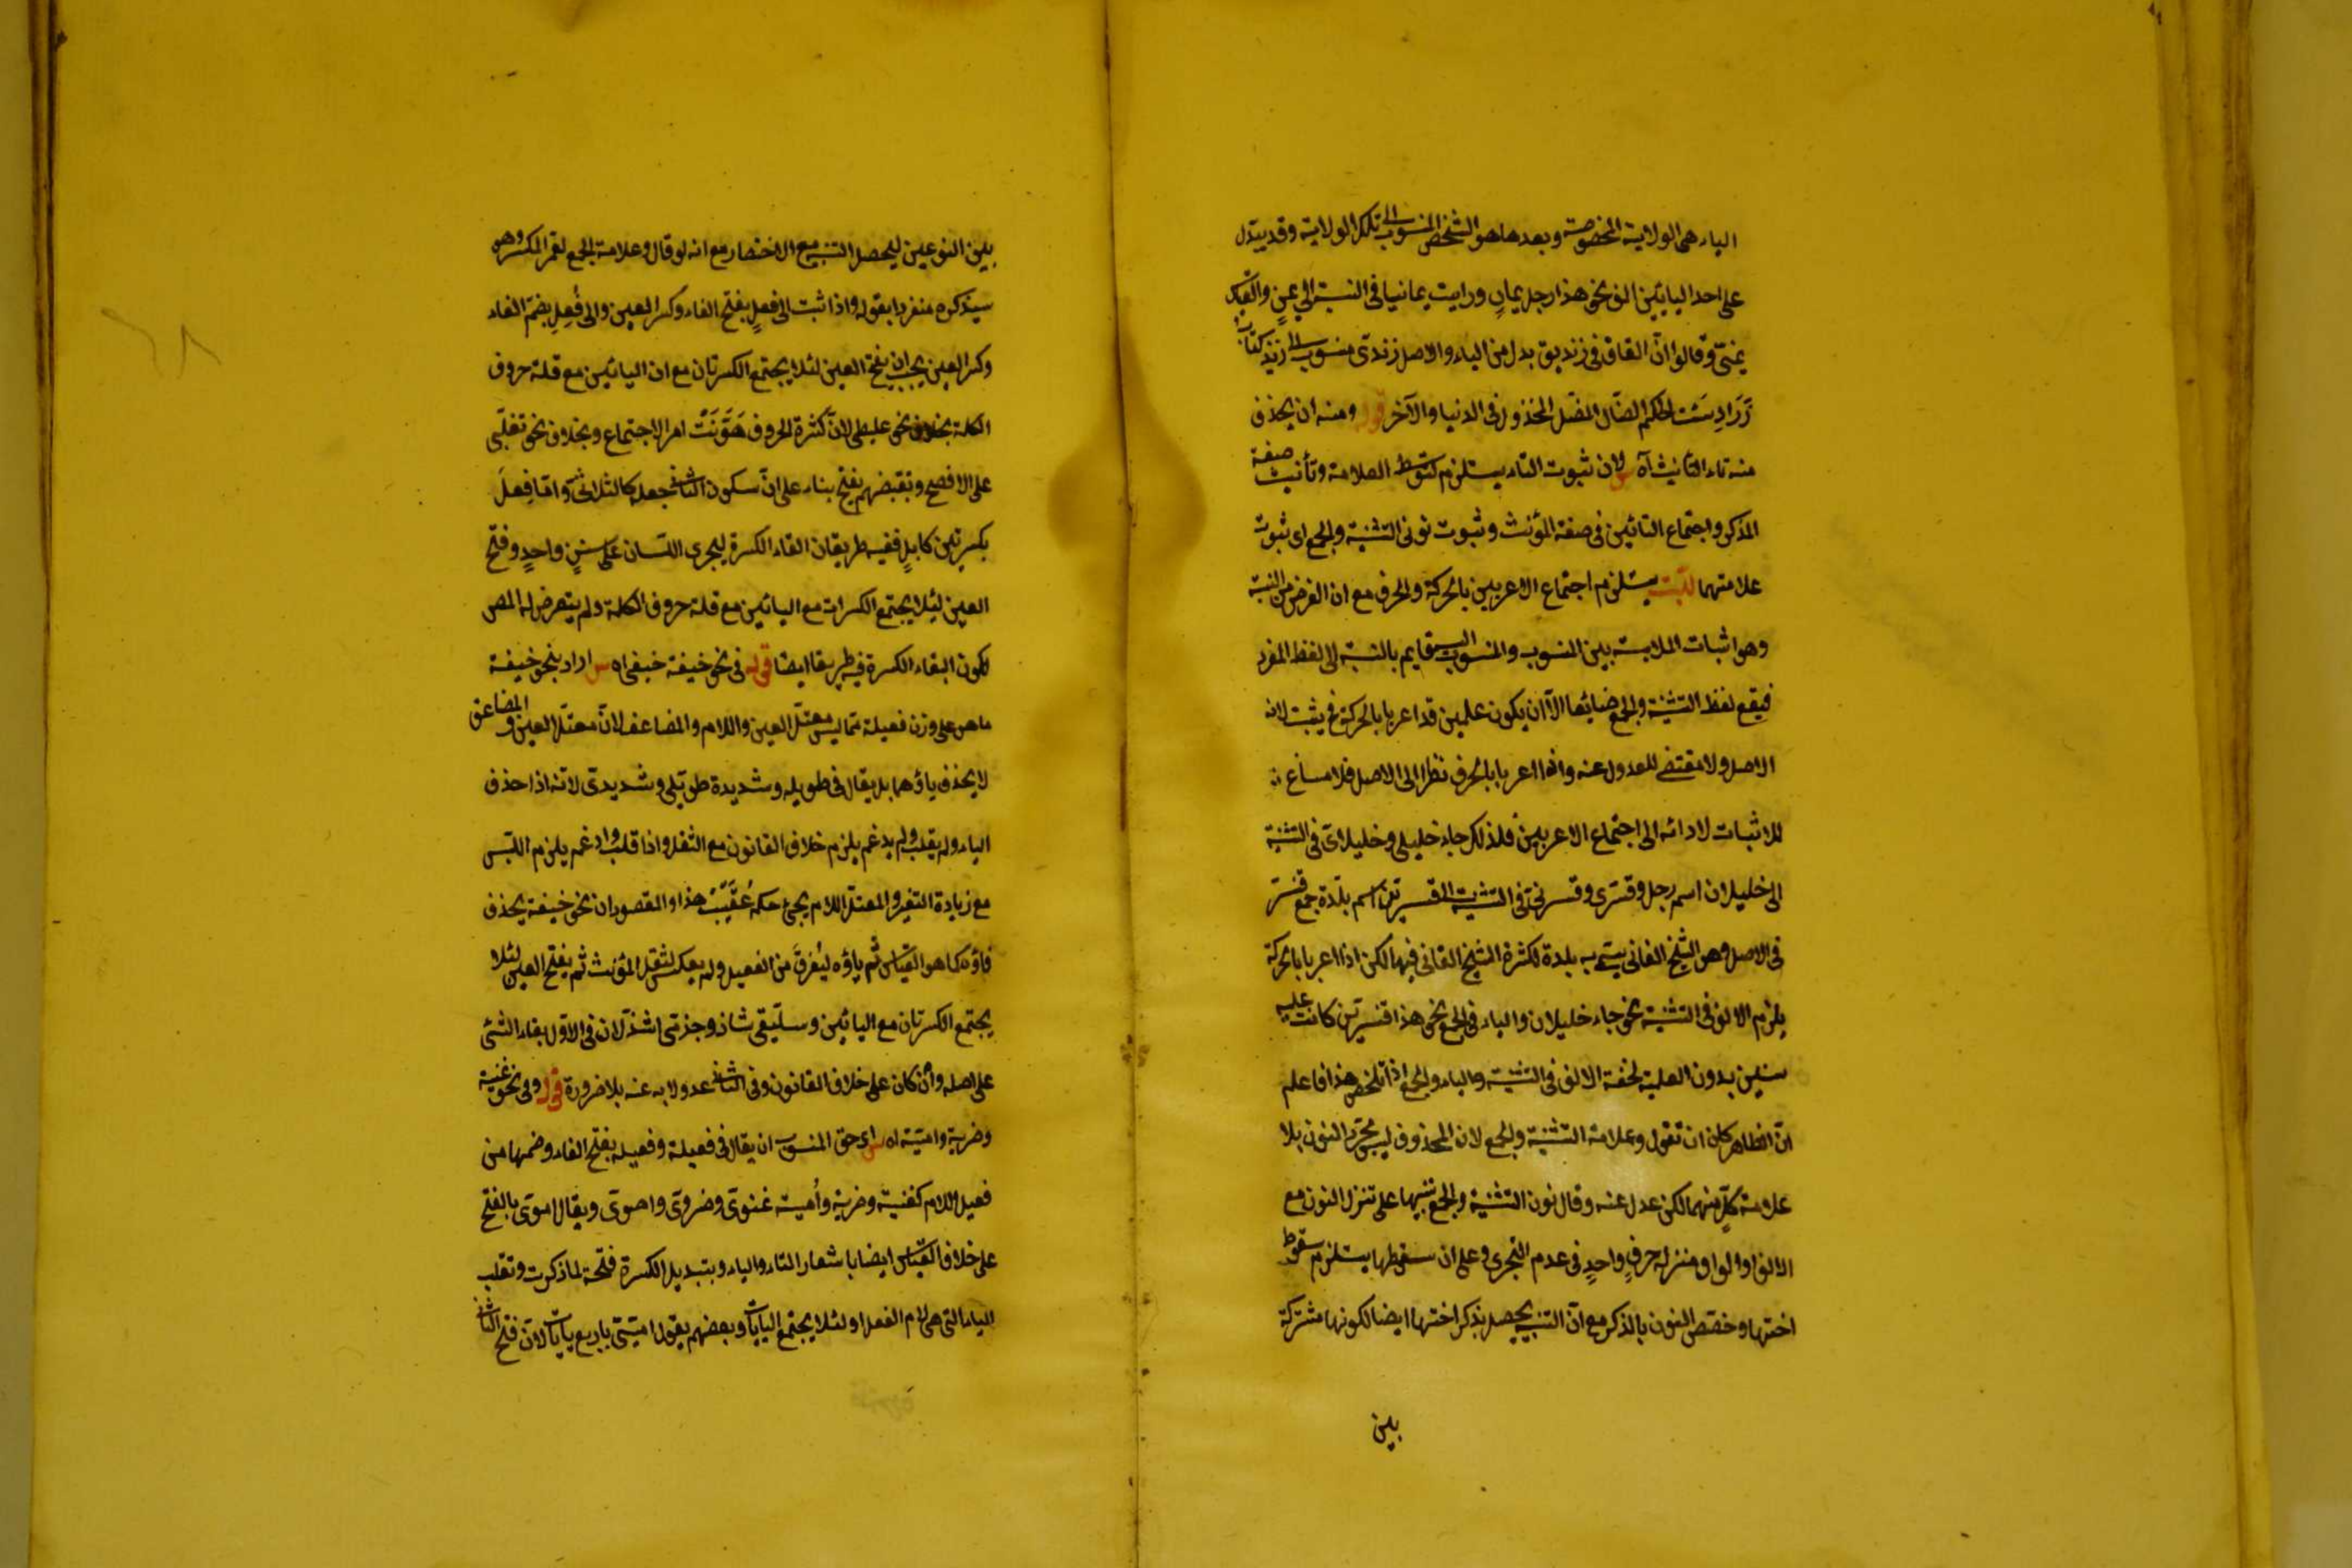 الياء هى الولاية المخصوصة وبعدها هو الشخص المنسوب الى تلك الولاية وقد يبدل
على احد اليائين الف نحو هذا رجل يمانٍ ورايت يمانيا فى النسبة الى يمن والقياس
يمنىّ وقالوا انّ القاف فى زنديق بدل من الياء والاصل زندى منسوب الى زند كتاب
زَرَادِشت الحكم الضّال المضّل المخذول فى الدنيا والآخر قوله ومنه ان يحذف
منه تاء التأنيث آه س لان ثبوت التاء يستلزم توسّط العلامة وتأنيث صفة
المذكر واجتماع التائين فى صفة المؤنث وثبوت نونى التثنية والجمع اى ثبوت
علامتهما للنسبة يستلزم اجتماع الاعرابين بالحركة والحرف مع ان الغرض من النسبة
وهو اثبات الملابسة بين المنسوب والمنسوب اليه قايم بالنسبة الى لفظ المفرد
فيقع لفظ التثنية والجمع ضائعا الّا ان يكون علمين قد اعربا بالحركة فح يثبت لانه
الاصل ولا مقتضى للعدول عنه واذا اعربا بالحرف نظرا الى الاصل فلا مساغ
للاثبات لادائه الى اجتماع الاعرابين فلذلك جاء خليلى وخليلانى فى النسبة
الى خليلان اسم رجل وقنسرى وقنسرينى فى النسبة الى قنسرين اسم بلدة جمع قنسر
فى الاصل وهو الشيخ الفانى يسمى به بلدة لكثرة الشيخ الفانى فيها لكن اذا اعربا بالحركة
يلزم الالف فى التثنية نحو جاء خليلان والياء فى الجمع نحو هذا قنسرين كانت عليه
سنين بدون العلمية لخفة الالف فى التثنية والياء فى الجمع اذا تلخص هذا فاعلم
انّ الظاهر كان ان تقول وعلامة التثنية والجمع لان المحذوف ليس مجرّد النون بلا
علامة كلّ منهما لكن عدل عنه وقال نون التثنية والجمع تنبيها على تنزل النون مع
الالف او الواو منزلة حرفٍ واحدٍ فى عدم التجزى وعلى ان سقوطها يستلزم سقوط
اختها وخصّص النون بالذكر مع انّ التنبيه يحصل بذكر اختها ايضا لكونها مشتركة
بين
بين النوعين ليحصل التنبيه مع الاختصار مع انه لو قال وعلامة الجمع لعمّ المكسر وهو
سيذكره منفردا بقوله واذا نسبت الى فَعِلٍ بفتح الفاء وكسر العين والى فُعِلٍ بضمّ الفاء
وكسر العين يجب ان يفتح العين لئلا يجتمع الكسرتان مع ان اليائين مع قلة حروف
الكلمة بخلاف نحو علبطى لانّ كثرة الحروف هَوَّنَتْ امر الاجتماع وبخلاف نحو تغلبى
على الافصح وبعضهم يفتح بناء على انّ سكون الثانى جعله كالثلاثى وامّا فِعِلَ
بكسرتين كابِلٍ ففيه طريقان القاء الكسرة ليجرى اللسان على سننٍ واحدٍ وفتح
العين لئلا يجتمع الكسرات مع اليائين مع قلة حروف الكلمة ولم يتعرض له المص
لكون ابقاء الكسرة فيه طريقا ايضا قوله فى نحو حنيفة حنفى اه س اراد بنحو حنيفة
ما هو على وزن فعيلة مما ليس معتلّ العين واللام والمضاعف لانّ معتلّ العين والمضاعف
لا يحذف ياؤهما بل يقال فى طويلة وشديدة طويلى وشديدى لانّه اذا حذف
الياء ولم يقلب ولم يدغم يلزم خلاف القانون مع الثقل واذا قلب وادغم يلزم اللبس
مع زيادة التغير والمعتلّ اللام يجئ حكمه عُقَيْبَ هذا والمقصود ان نحو حنيفة يحذف
فاؤه كما هو القياس ثم ياؤه ليُفرقَ من الفعيل ولم يعكس لثقل المؤنث ثم يفتح العين لئلا
يجتمع الكسرتان مع اليائين وسليقى شاذ وجذمى اشذّ لان فى الاول بقاء الشئ
على اصله وان كان على خلاف القانون وفى الثانى عدولا به عنه بلا ضرورة قوله وفى نحو غنية
وضرية وامية اه س اى حق المنسوب ان يقال فى فعيلة وفعيلة بفتح الفاء وضمها من
فعيل اللام كغنية وضرية وأمية غنوى وضروى واموى ويقال اموى بالفتح
على خلاف القياس ايضا باشعار التاء والياء وبتبديل الكسرة فتحة لما ذكرت وتقلب
الياء التى هى لام الفعل واوا لئلا يجتمع اليايات وبعضهم يقول اميّىّ باربع يايات لانّ فتح الثانى